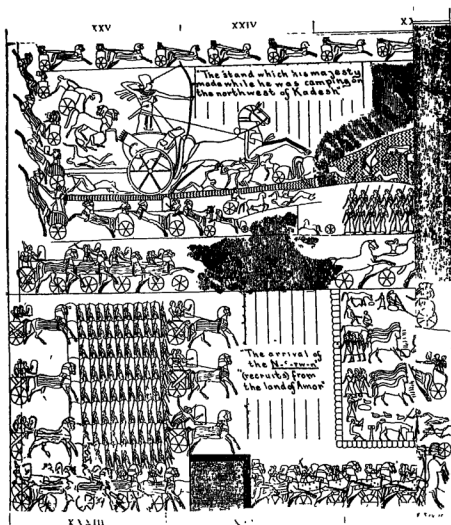 XXV
XXIV
XX
"The stand which his majesty
made while he was camping on
the northwest of Kadesh"
"The arrival of
the N-ʿ-rw-n
(recruits) from
the land of Amor"